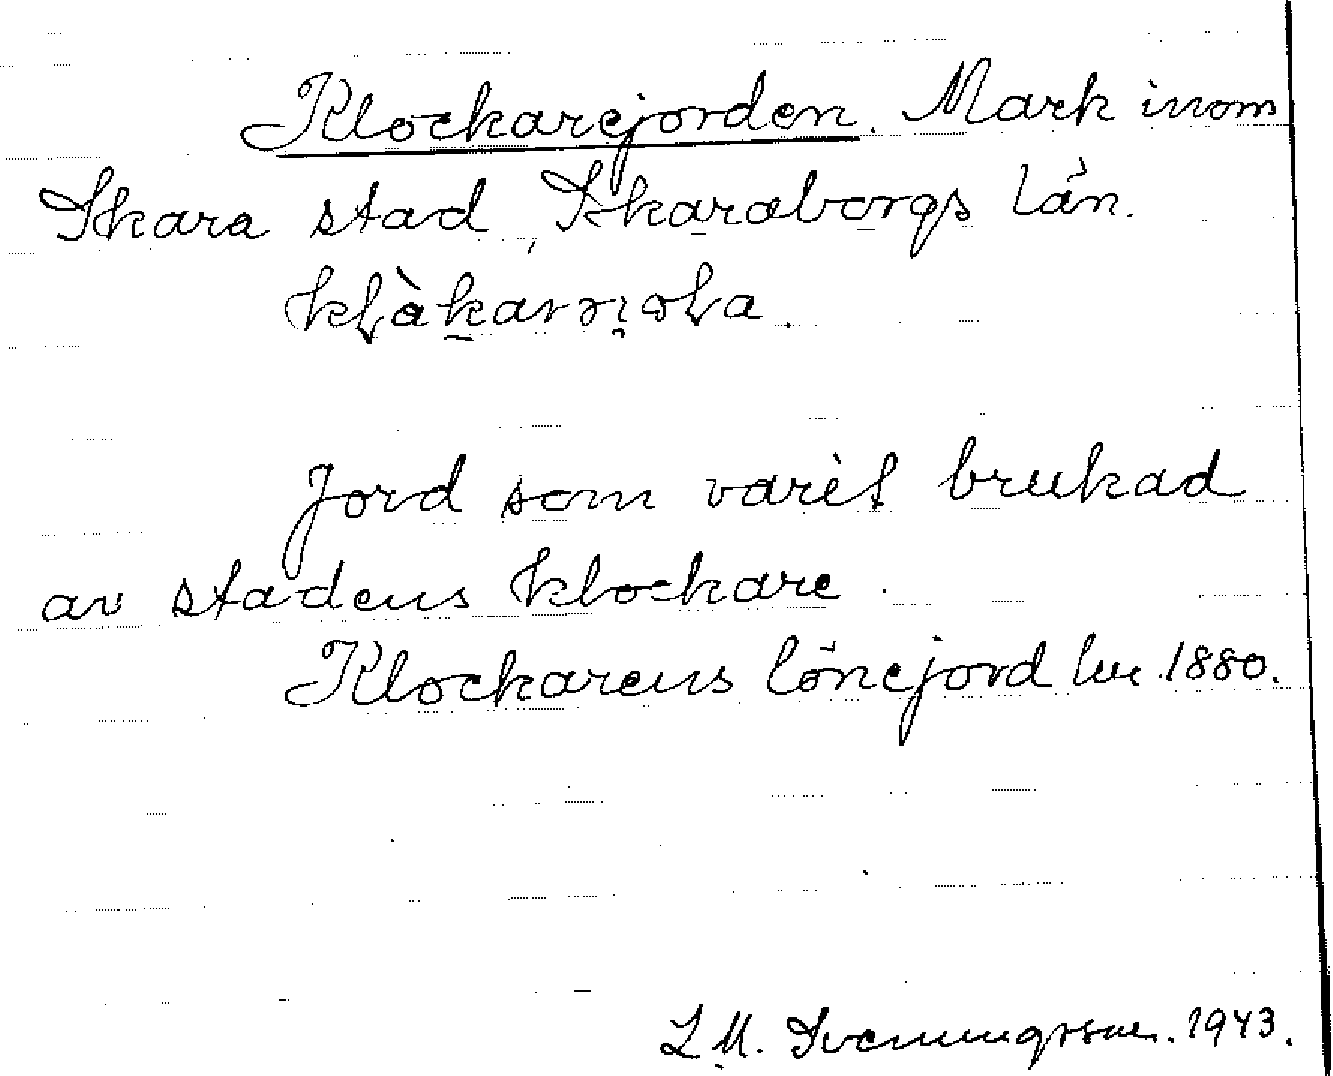 Klockarejorden. Mark inom
Skara stad, Skaraborgs län.
Jord som varit brukad
av stadens klockare.
Klockarens lönejord 1880.
L. M. Svenungsson. 1943.